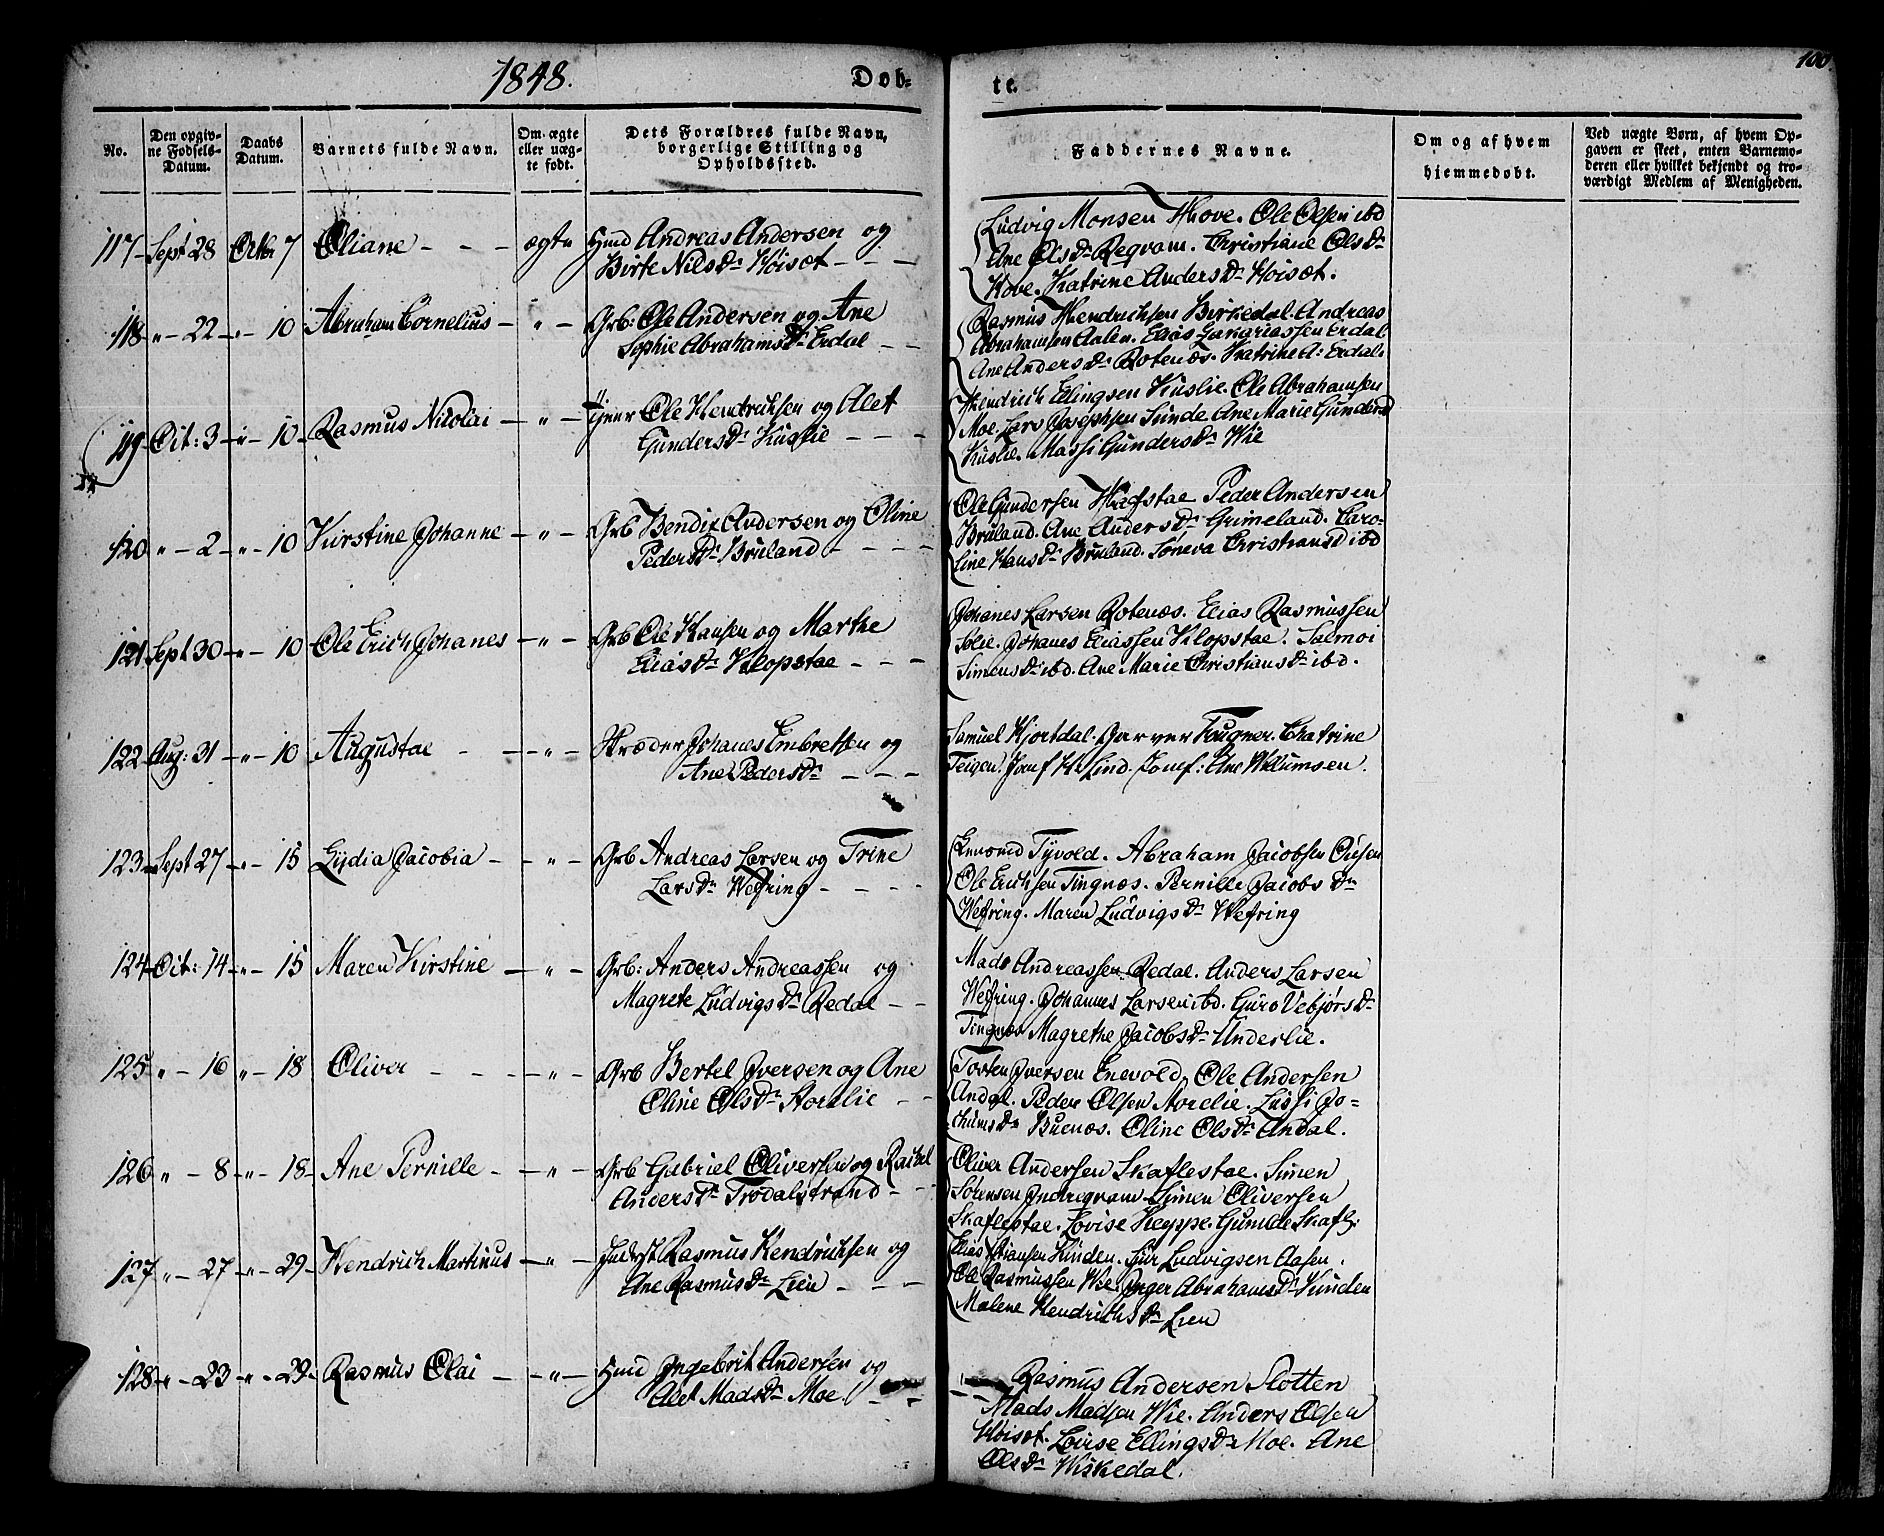 1848.
Døb-
te.
100
No.
Den opgiv-
ne Fødsels-
Datum.
Daabs
Datum.
Barnets fulde Navn.
Om ægte
eller uæg-
te født.
Dets Forældres fulde Navn,
borgerlige Stilling og
Opholdssted.
Faddernes Navne.
Om og af hvem
hjemmedøbt.
Ved uægte Børn, af hvem Op-
gaven er skeet, enten Barnemo-
deren eller hvilket bekjendt og tro-
værdigt Medlem af Menigheden.
117 Sept 28 Octbr 7 Oliane - - - ægte Huusmd Andreas Andersen og
Birte Nilsdr Høiset - - -
Ludvig Monsen Hove. Ole Olsen ibd
Ane Olsdr Reqvam. Christiane Olsdr
Hove. Katrine Andersdr Høiset.
118 " - 22 - " - 10 Abraham Cornelius - " - Grb: Ole Andersen og Ane
Sophie Abrahamsdr Erdal - -
Rasmus Hendrichsen Birkedal. Andreas
Abrahamsen Aalen. Elias Zakariassen Erdal
Ane Andersdr Rotenæs. Katrine A: Erdal.
119 Oct: 3 - " - 10 - Rasmus Nicolai - " - Ole Hendrichsen og Alet
Gundersdr Kuslie - - -
Hendrich Ellingsen Kuslie. Ole Abrahamsen
Moe. Lars Josephsen Sunde. Ane Marie Gundersd
Kuslie. Massi Gundersdr Wie
120 " - 2 - " - 10 Kirstine Johanne - " - Grb Bendix Andersen og Oline
Pedersdr Bruland - - - -
Ole Gundersen Hafstae Peder Andersen
Bruland. Ane Andersdr Grimeland. Caro-
line Hansdr Bruland. Søneva Christiansd ibd
121 Sept 30 - " - 10 Ole Erich Johanes - " - Grb Ole Hansen og Marthe
Eliasdr Klopstae - - -
Johanes Larsen Rotenæs. Elias Rasmussen
Solie. Johanes Eliassen Klopstae. Salmoi
Simensdr ibd. Ane Marie Christiansdr ibd.
122 Aug: 31 - " - 10 Augustae - - " - Skræder Johanes Embretsen og
Ane Pedersdr - - -
Samuel Hjortdal. Garver Fougner. Chatrine
Teigen. Jomf H: Lind. Jomf: Ane Willumsen.
123 Sept 27 - " - 15 Lydia Jacobia - - " - Grb Andreas Larsen og Trine
Larsdr Wefring - - - -
Tyvold. Abraham Jacobsen
Ole Erichsen Tingnæs. Pernille Jacobsdr
Wefring. Maren Ludvigsdr Wefring
124 Oct: 14 - " - 15 Maren Kirstine - " - Grb: Anders Andreassen og
Magrete Ludvigsdr Redal - -
Mads Andreassen Redal. Anders Larsen
Wefring. Johannes Larsen ibd. Guro Vebjørsdr
Tingnæs Magrethe Jacobsdr Underlie.
125 " - 16 " - 18 Oliver - - - " - Grb Bertel Iversen og Ane
Oline Olsdr Horelie - -
Torsten Iversen Enevold. Ole Andersen
Andal. Peder Olsen Horelie. Lussi Jo-
chumsdr Buenæs. Oline Olsdr Andal.
126 " - 8 - " - 18 - Ane Pernille - - " - Grb Gabriel Oliversen og Rachel
Andersdr Trodalstrand - -
Oliver Andersen Skaflestae. Simen
Sørensen Indreqvam. Simen Oliversen
Skaflestae. Lovise Heyppe. Gunilde Skafl:
127 " - 27 - " - 29 - Hendrich Martinus - " - Inderst Rasmus Hendrichsen og
Ane Rasmusdr Lien - - -
Elias Hansen Hinden. Siur Ludvigsen Aasen.
Ole Rasmussen Wie. Inger Abrahamsdr Hinden
Malene Hendrichsdr Lien
128 " - 23 " - 29 - Rasmus Olai - " - Huusmd Ingebrit Andersen og
Alet Madsdr Moe. - -
Rasmus Andersen Slotten
Mads Madsen Wie. Anders Olsen
Høiset. Lovise Ellingsdr Moe. Ane
Olsdr Wiskedal.